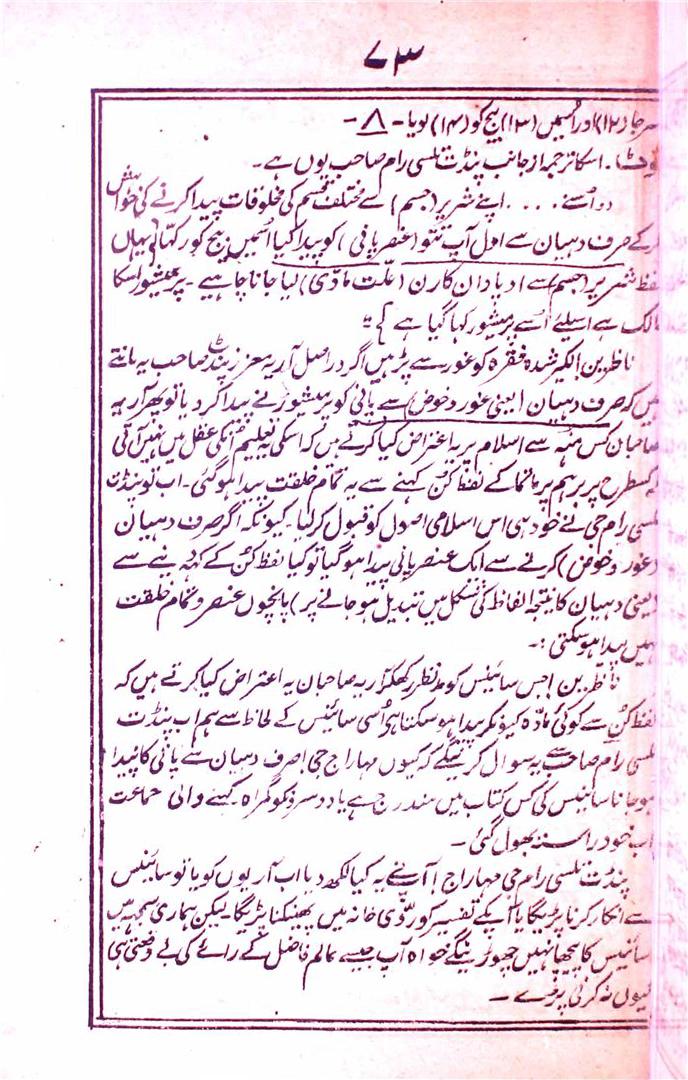 ۷۳
سرجا (۱۲) اور اُسمیں (۱۳) بیج کو (۱۴) بویا - ۸ -
نوٹ . اسکا ترجمہ از جانب پنڈت تلسی رام صاحب یوں ہے ۔
دو اُسنے . . . . اپنے شریر (جسم) سے مختلف قسم کی مخلوقات پیدا کرنے کی خواہش
کرکے صرف دہیان سے اول آپ تتو (عنصر پانی) کو پیدا کیا اُسمیں بیج کو رکھا (یہاں
لفظ شریر (جسم) سے اوپادان کارن (علت مادّی) لیا جانا چاہیے ۔ پرمیشور اسکا
مالک ہے اسلیئے اُسے پرمیشور کہا گیا ہے
ناظرین الکیر شدہ فقرہ کو غور سے پڑہیں اگر دراصل آریہ معزز پنڈت صاحب یہ مانتے
ہیں کہ صرف دہیان (یعنی غور و خوض) سے پانی کو پرمیشور نے پیدا کر دیا تو پھر آریہ
صاحبان کس منہہ سے اسلام پر یہ اعتراض کیا کرتے ہیں کہ اسکی یہ تعلیم اُنکی عقل میں نہیں آتی
کہ کسطرح پر برہم پرماتما کے لفظ کُن کہنے سے یہ تمام خلقت پیدا ہو گئی ۔ اب تو پنڈت
تلسی رام جی نے خود ہی اس اسلامی اصول کو قبول کر لیا ۔ کیونکہ اگر صرف دہیان
(غور و خوض) کرنے سے ایک عنصر پانی پیدا ہو گیا تو کیا لفظ کُن کے کہہ دینے سے
(یعنی دہیان کا نتیجہ الفاظ کی شکل میں تبدیل ہو جانے پر) پانچوں عنصر و تمام خلقت
نہیں پیدا ہو سکتی :۔
ناظرین! جس سائینس کو مدنظر رکھکر آریہ صاحبان یہ اعتراض کیا کرتے ہیں کہ
لفظ کُن سے کوئی مادّہ کیونکر پیدا ہو سکتا ہے اُسی سائینس کے لحاظ سے ہم اب پنڈت
تلسی رام صاحب سے یہ سوال کرینگے کہ کیوں مہاراج جی! صرف دہیان سے پانی کا پیدا
ہو جانا سائینس کی کس کتاب میں مندرج ہے یا دوسرونکو گمراہ کہنے والی جماعت
اب خود راستہ بھول گئی ۔
پنڈت تلسی رام جی مہاراج! آپنے یہ کیا لکھ دیا اب آریوں کو یا تو سائینس
سے انکار کرنا پڑیگا یا آپکے تفسیر کو ردّی خانہ میں پھینکنا پڑیگا لیکن ہماری سمجہہ میں
سائینس کا پیچھا نہیں چھوڑینگے خواہ آپ جیسے عالم فاضل کے رائے کی بے وقعتی ہی
کیوں نہ کرنی پڑے ۔